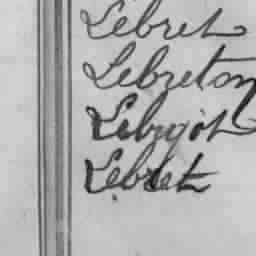 Lebret
Lebreton
Lebigot
Lebret